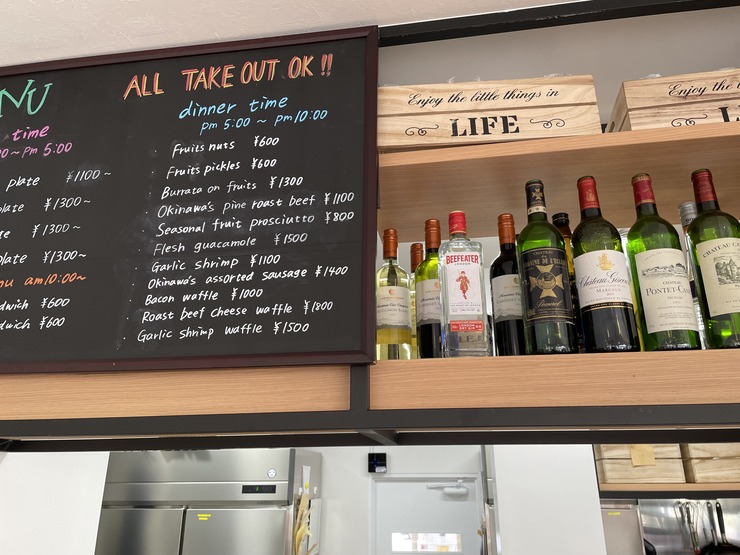 NU
time
PM 5:00
plate ¥1100~
plate ¥1300~
plate ¥1300~
plate ¥1300~
nu am10:00~
dwich ¥600
dwich ¥600
ALL TAKE OUT OK!!
dinner time
PM 5:00 ~ PM 10:00
· Fruits nuts ¥600
· Fruits pickles ¥600
· Burrata on fruits ¥1300
· Okinawa's pine roast beef ¥1100
· Seasonal fruit prosciutto ¥800
· Flesh guacamole ¥1500
· Garlic shrimp ¥1100
· Okinawa's assorted sausage ¥1400
· Bacon waffle ¥1000
· Roast beef cheese waffle ¥1800
· Garlic shrimp waffle ¥1500
Enjoy the little things in
LIFE
Enjoy the little
BEEFEATER
LONDON
MARGAUX
CHATEAU
PONTET-CA
CHATEAU